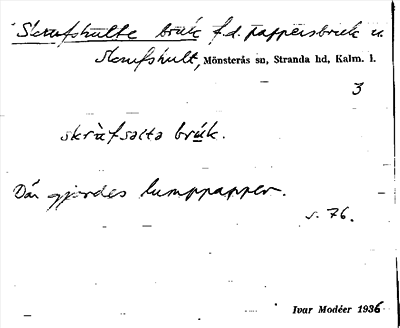 Skrufshulte bruk f.d. pappersbruk u.
Skrufshult, Mönsterås sn, Stranda hd, Kalm. l.
3
skrùfsalta brúk.
Där gjordes lumppapper.
s. 76.
Ivar Modéer 1936